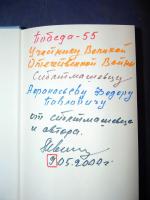 Победа-55
Участнику Великой
Отечественной Войны
Сибтяжмашевцу
Афанасьеву Федору
Павловичу
от сибтяжмашевца
и автора.
9.05.2000г.